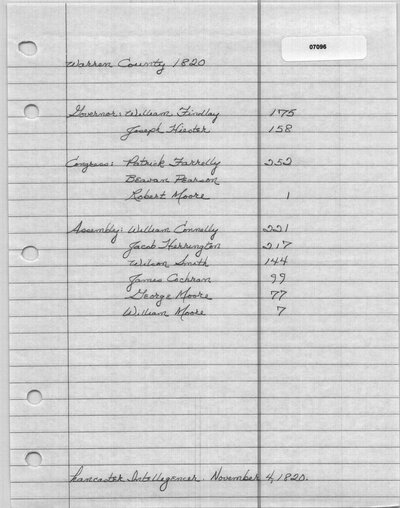 07096
Warren County 1820
Governor: William Findlay 175
Joseph Hiester 158
Congress: Patrick Farrelly 252
Beavan Pearson
Robert Moore 1
Assembly: William Connelly 221
Jacob Herrington 217
Wilson Smith 144
James Cochran 99
George Moore 77
William Moore 7
Lancaster Intellegencer. November 4, 1820.